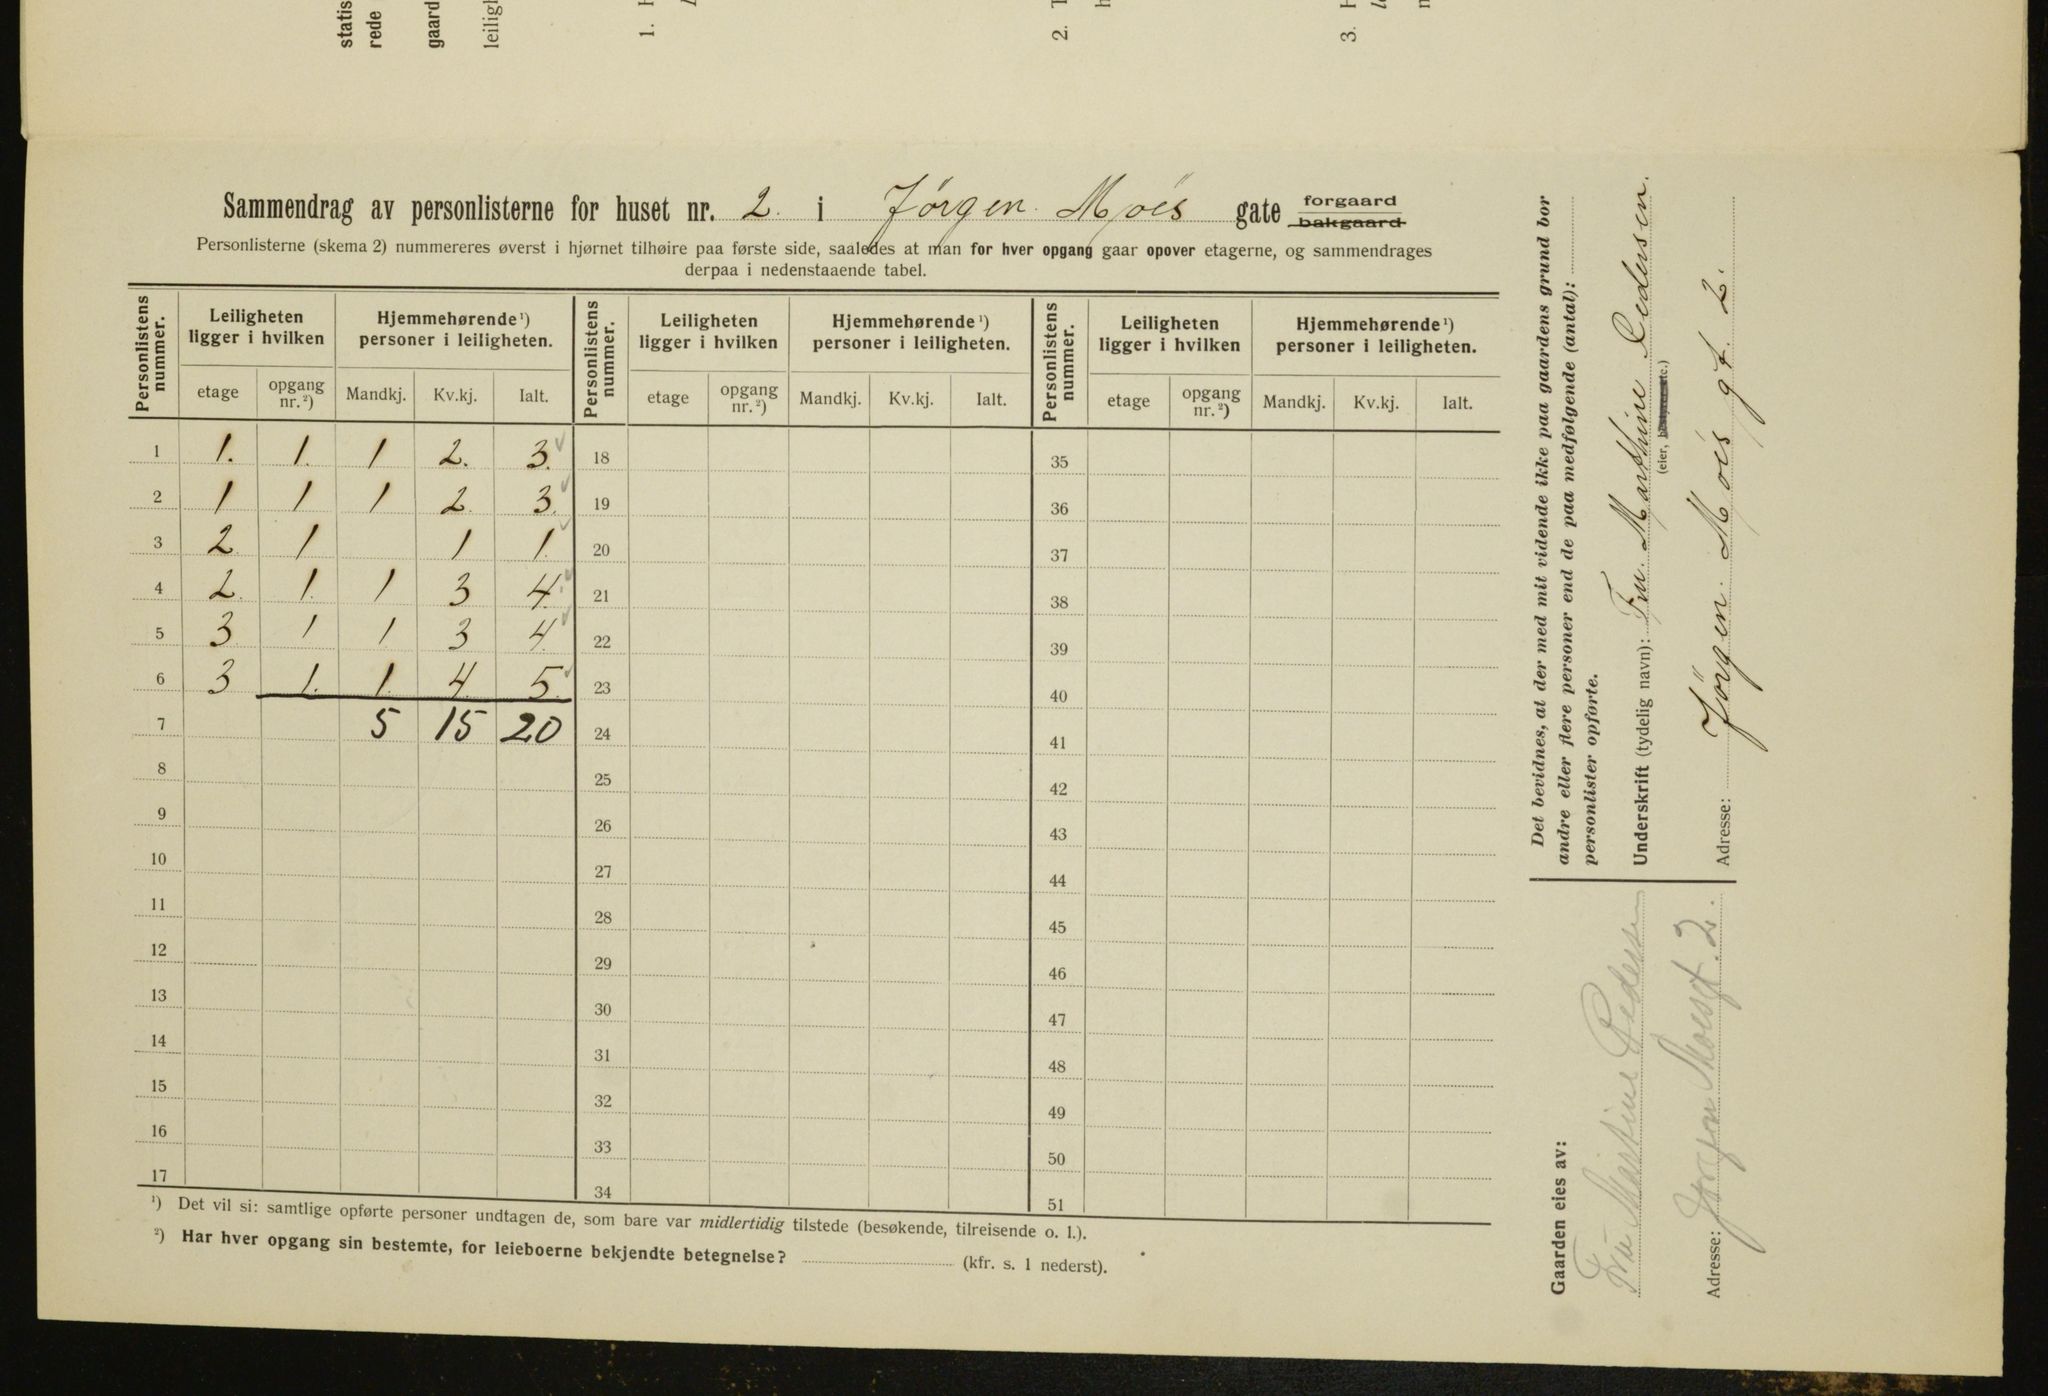 statis
rede
gaard
leiligh
1. H
2. T
h
3. H
Sammendrag av personlisterne for huset nr. 2. i Jørgen Moës gate forgaard bakgaard
Personlisterne (skema 2) nummereres øverst i hjørnet tilhøire paa første side, saaledes at man for hver opgang gaar opover etagerne, og sammendrages
derpaa i nedenstaaende tabel.
Personlistens nummer. Leiligheten ligger i hvilken Hjemmehørende ¹) personer i leiligheten. Personlistens nummer. Leiligheten ligger i hvilken Hjemmehørende ¹) personer i leiligheten. Personlistens nummer. Leiligheten ligger i hvilken Hjemmehørende ¹) personer i leiligheten.
etage opgang nr. ²) Mandkj. Kv.kj. Ialt. etage opgang nr. ²) Mandkj. Kv.kj. Ialt. etage opgang nr. ²) Mandkj. Kv.kj. Ialt.
1 1. 1. 1 2. 3. 18 35
2 1 1 1 2 3. 19 36
3 2 1 1 1. 20 37
4 2. 1. 1 3 4. 21 38
5 3 1 1 3 4. 22 39
6 3 1. 1. 4 5. 23 40
7 5 15 20 24 41
8 25 42
9 26 43
10 27 44
11 28 45
12 29 46
13 30 47
14 31 48
15 32 49
16 33 50
17 34 51
¹) Det vil si: samtlige opførte personer undtagen de, som bare var midlertidig tilstede (besøkende, tilreisende o. l.).
²) Har hver opgang sin bestemte, for leieboerne bekjendte betegnelse? (kfr. s. 1 nederst).
Det bevidnes, at der med mit vidende ikke paa gaardens grund bor
andre eller flere personer end de paa medfølgende (antal):
personlister opførte.
Underskrift (tydelig navn): Fru. Marthine Pedersen.
(eier, bestyrer etc.)
Adresse: Jørgen. Moës gt. 2.
Gaarden eies av:
Fru Marthine Pedersen
Adresse: Jørgen Moesgt. 2.